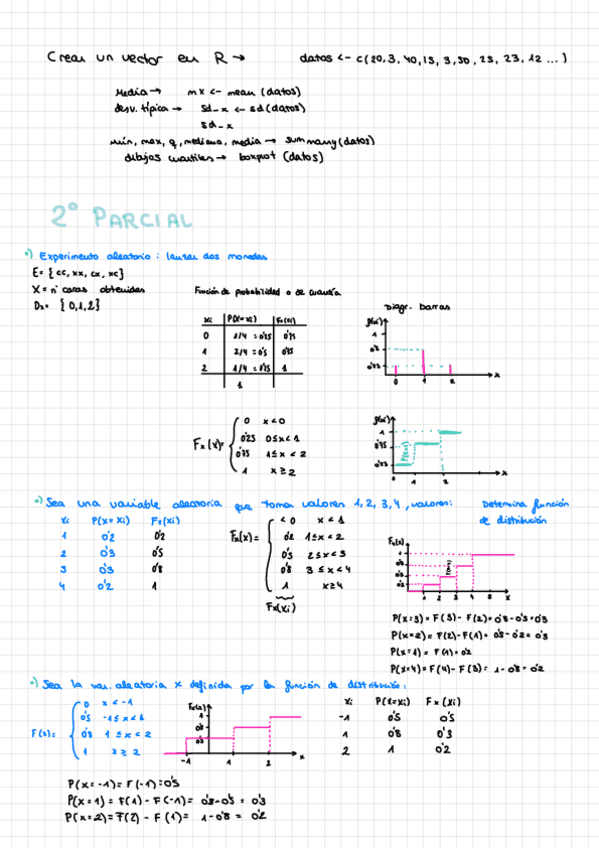 Crear un vector en R → datos <- c(20,3,40,15,3,50,25,23,12...)
Media → mx <- mean(datos)
desv. típica → sd_x <- sd(datos)
sd_x
mín, max, q, mediana, media → summary(datos)
dibujos cuartiles → boxplot (datos)
2º PARCIAL
Experimento aleatorio: lanzar dos monedas
E= {cc, xx, cx, xc}
X= nº caras obtenidas
Dx= {0,1,2}
Función de probabilidad o de cuantía
xi P(X=xi) Fx(xi)
0 1/4 = 0'25
1 2/4 = 0'5 0'75
2 1/4 = 0'25 1
1
Diagr. barras
1
0'5
0'25
0 1 2 x
Fx(x)=
0 x<0
0'25 0≤x<1
0'75 1≤x<2
1 x≥2
1
0'75
0'25
0 1 2 x
Sea una variable aleatoria que toma valores 1,2,3,4, valores: Determina función
de distribución
xi P(X=xi) Fx(xi)
1 0'2 0'2
2 0'3 0'5
3 0'3 0'8
4 0'2 1
Fx(x)=
0 x<1
0'2 1≤x<2
0'5 2≤x<3
0'8 3≤x<4
1 x≥4
Fx(xi)
Fx(x)
1 2 3 4 x
P(x=3)= F(3)-F(2)=0'8-0'5=0'3
P(x=2)= F(2)-F(1)= 0'5-0'2= 0'3
P(x=1)= F(1)=0'2
P(x=4)=F(4)-F(3)= 1-0'8=0'2
Sea la var. aleatoria x definida por la función de distribución:
F(x)=
0 x<-1
0'5 -1≤x<1
0'8 1≤x<2
1 x≥2
Fx(x)
1
0'8
0'5
-1 1 2 x
xi P(X=xi) Fx(xi)
-1 0'5 0'5
1 0'8 0'3
2 1 0'2
P(x=-1)= F(-1)=0'5
P(x=1)= F(1)-F(-1)= 0'8-0'5 = 0'3
P(x=2)=F(2)-F(1)= 1-0'8= 0'2